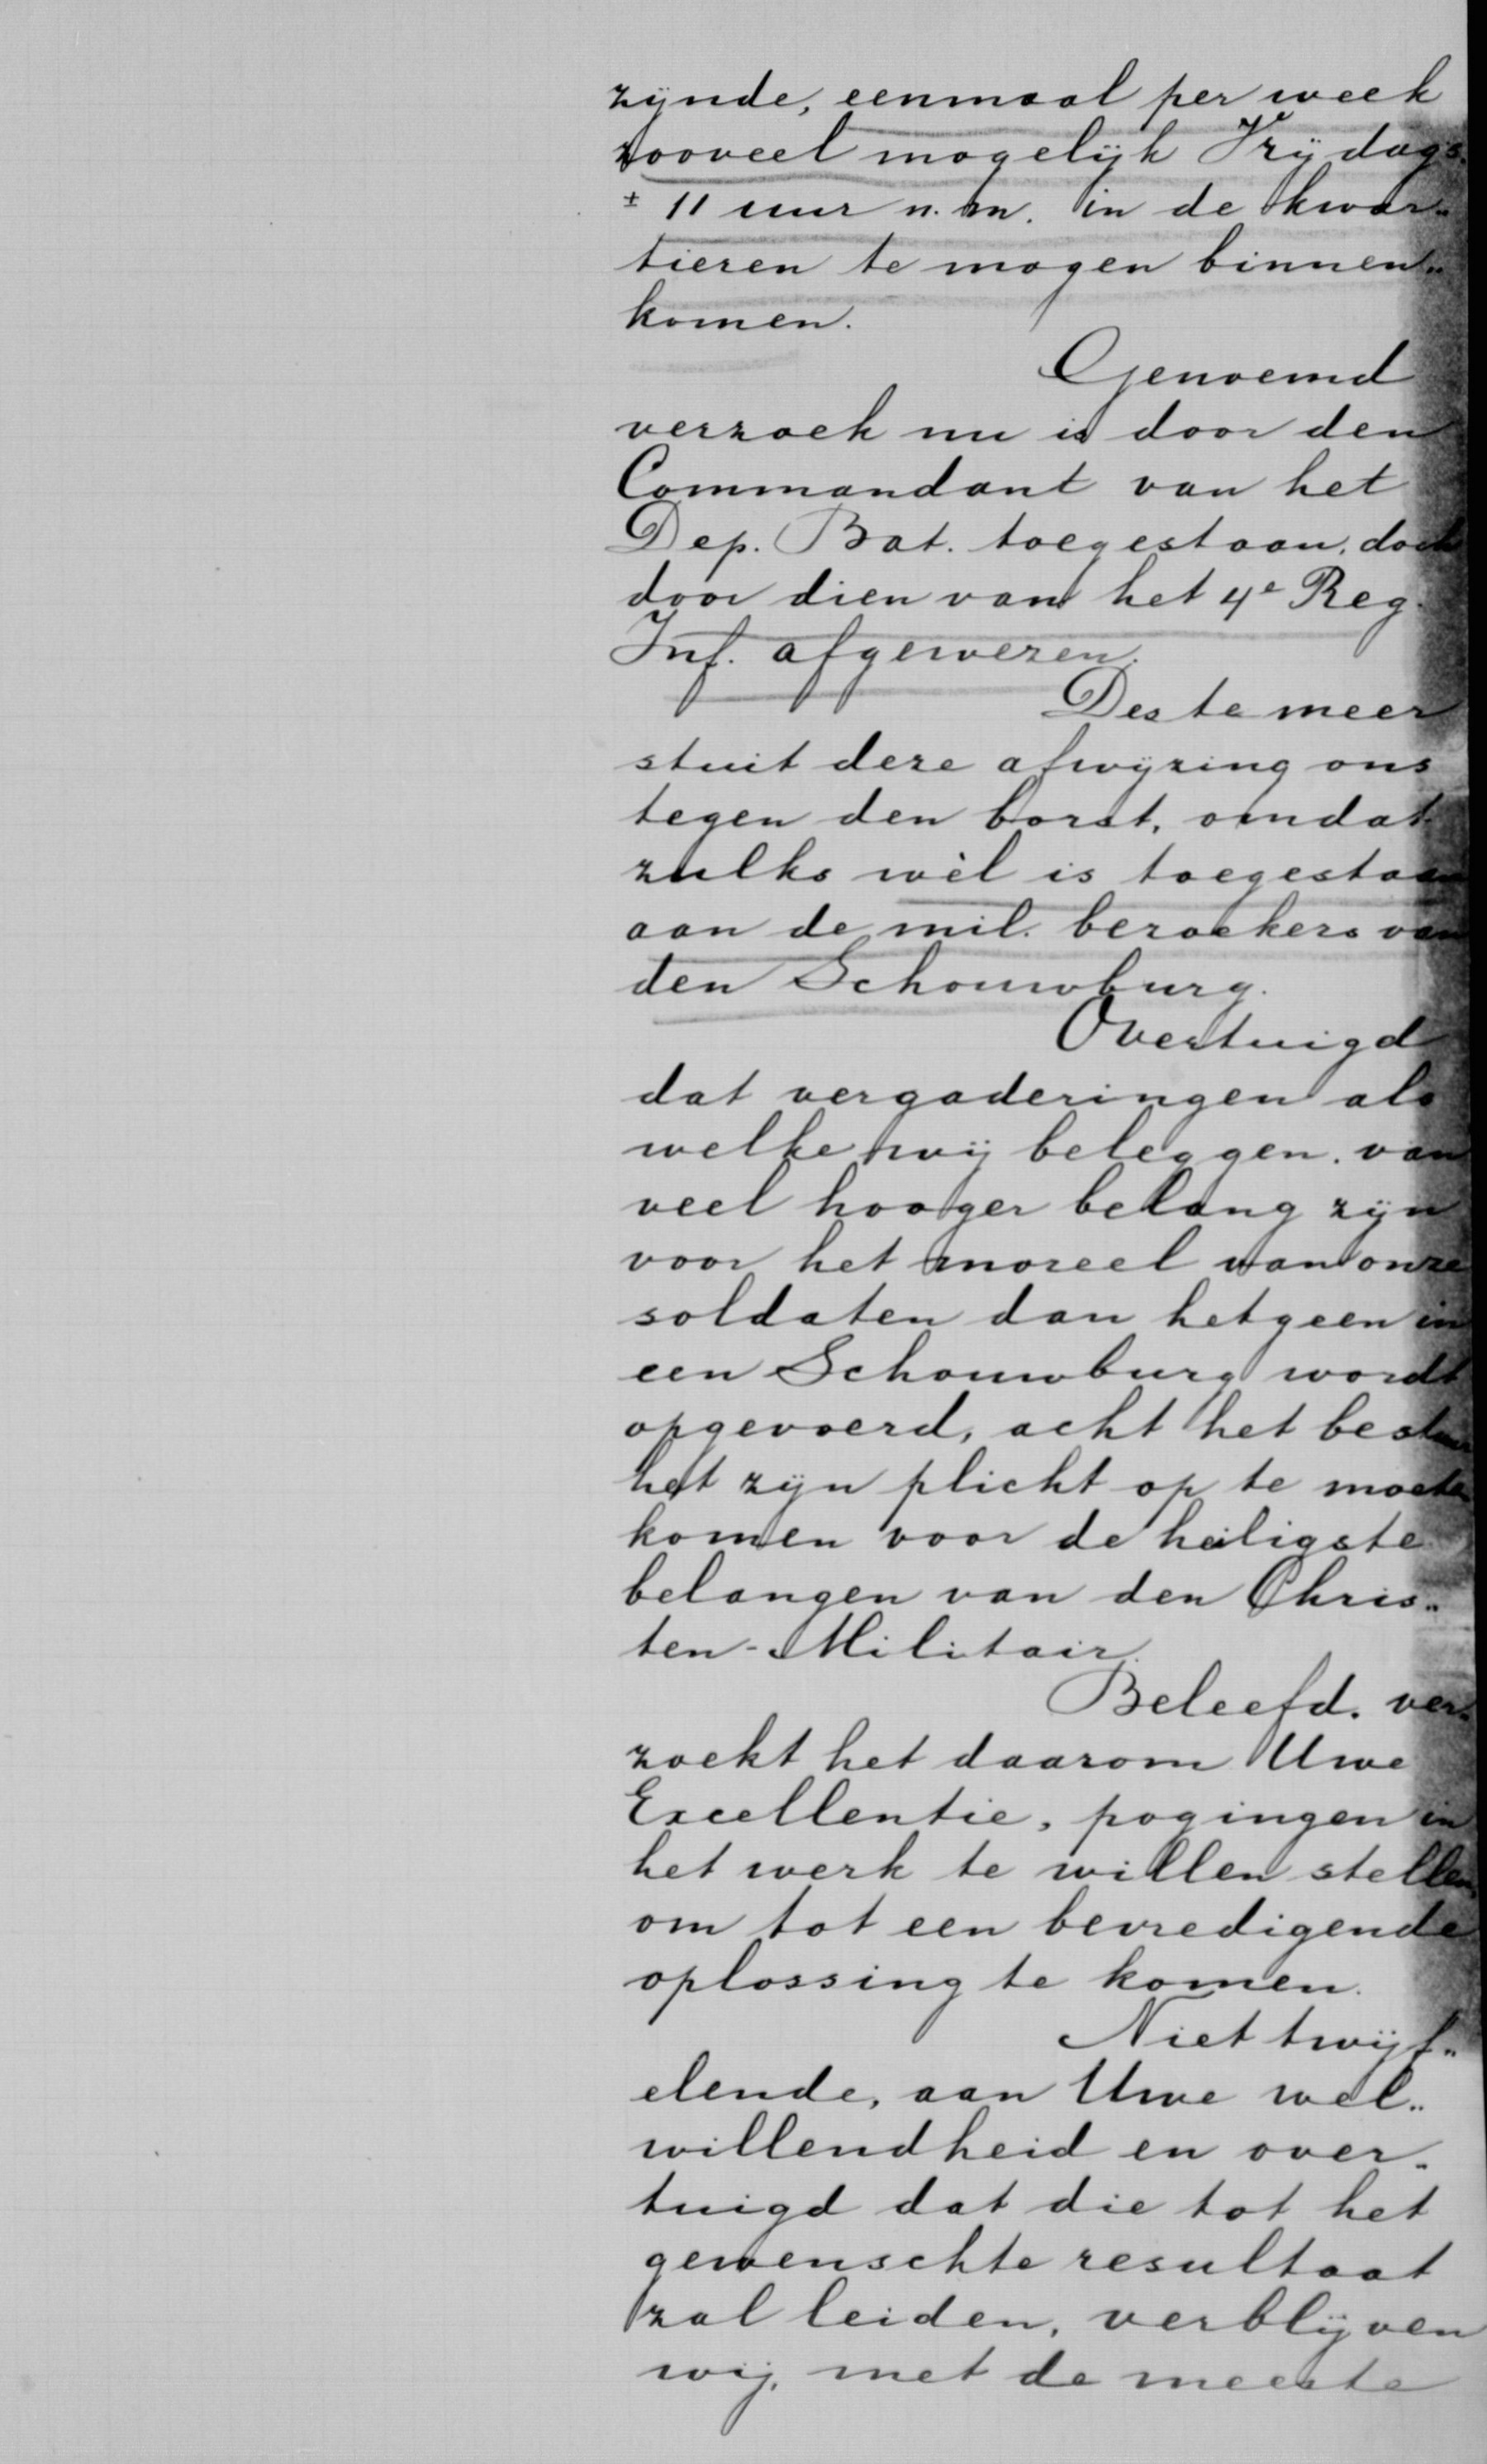 zijnde, eenmaal per week
zooveel mogelijk Vrijdags
± 11 uur n.m. in de kwar„
tieren te mogen binnen„
komen.
Genoemd
verzoek nu is door den
Commandant van het
Dep. Bat. toegestaan, doch
door dien van het 4e Reg.
Inf. afgewezen.
Des te meer
stuit deze afwijzing ons
tegen den borst, omdat
zulks wèl is toegestaan
aan de mil. bezoekers van
den Schouwburg.
Overtuigd
dat vergaderingen als
welke wij beleggen, van
veel hooger belang zijn
voor het moreel van onze
soldaten dan hetgeen in
een Schouwburg wordt
opgevoerd, acht het bestuur
het zijn plicht op te moeten
komen voor de heiligste
belangen van den Chris„
ten-Militair.
Beleefd. ver„
zoekt het daarom Uwe
Excellentie, pogingen in
het werk te willen stellen,
om tot een bevredigende
oplossing te komen.
Niet twijf„
elende, aan Uwe wel„
willendheid en over„
tuigd dat die tot het
gewenschte resultaat
zal leiden, verblijven
wij, met de meeste